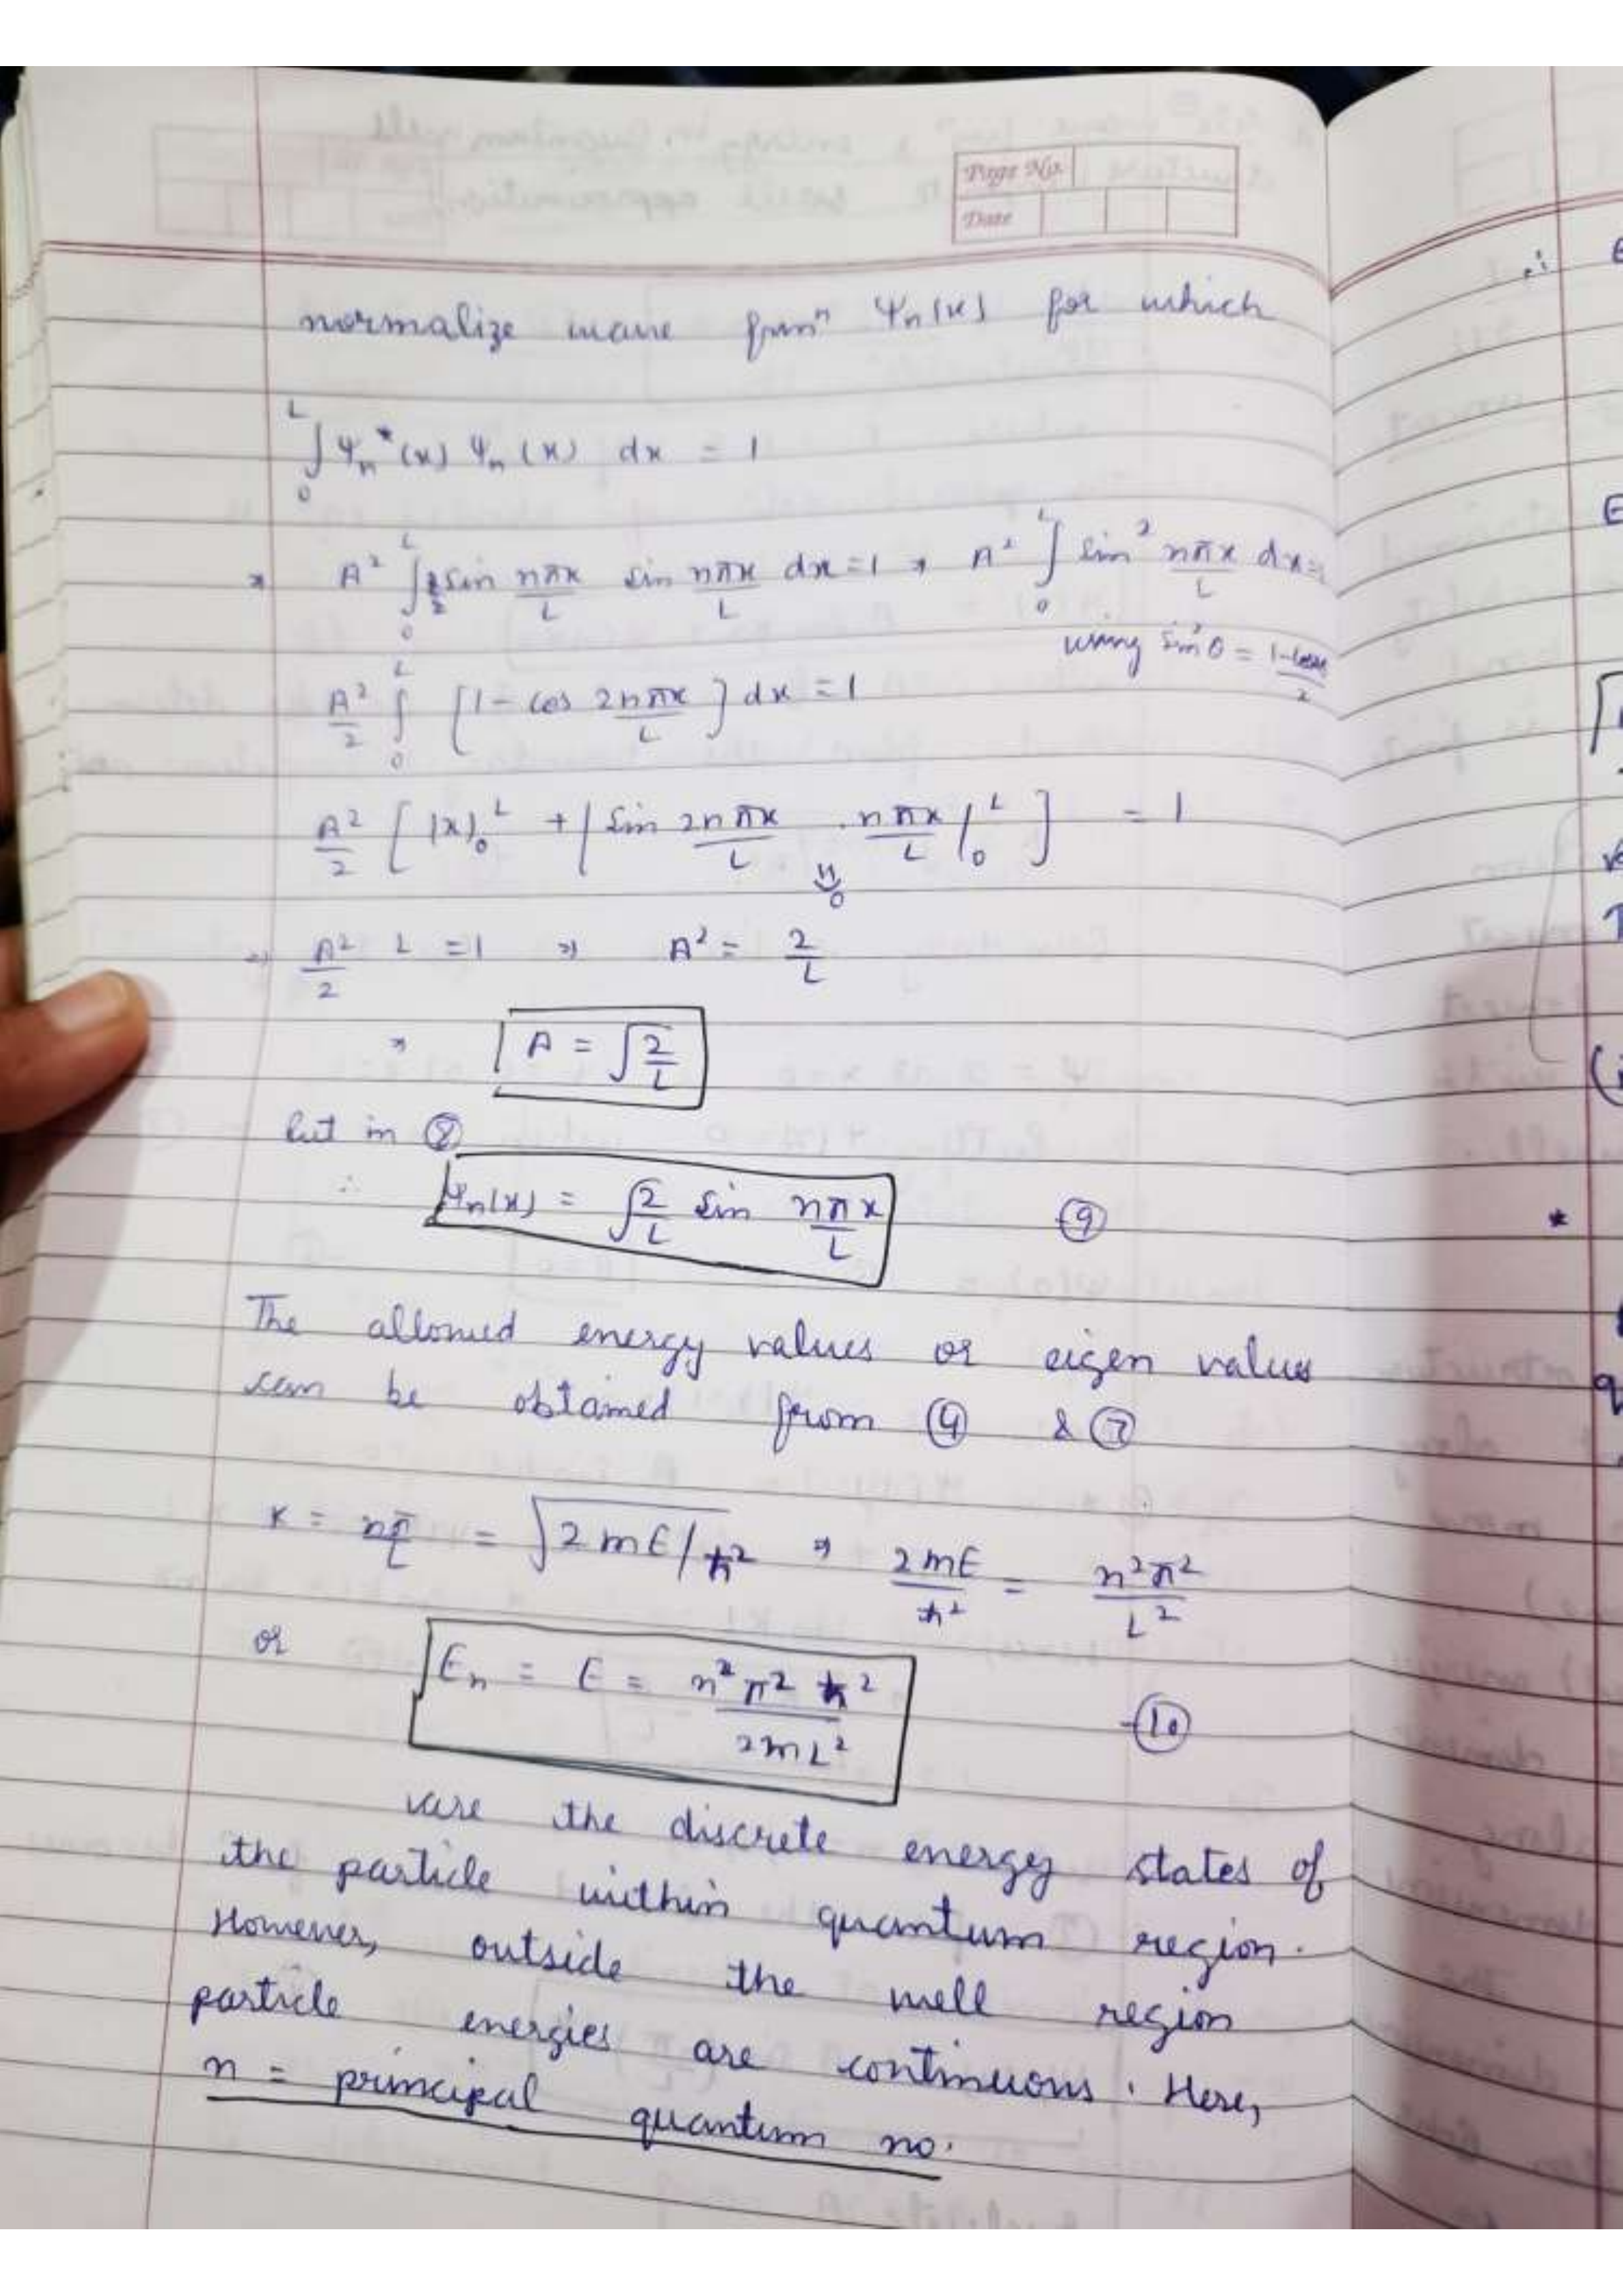 Page No.
Date
normalize wave funⁿ Ψn(x) for which
∫₀ᴸ Ψn*(x) Ψn(x) dx = 1
⇒ A² ∫₀ᴸ sin nπx/L sin nπx/L dx = 1 ⇒ A² ∫₀ᴸ sin² nπx/L dx = 1
using sin²θ = 1-cos2θ/2
A²/2 ∫₀ᴸ [1 - cos 2nπx/L] dx = 1
A²/2 [ |x|₀ᴸ + | sin 2nπx/L . nπx/L |₀ᴸ ] = 1
0
⇒ A²/2 L = 1 ⇒ A² = 2/L
⇒ A = √2/L
but in ⑧
∴ Ψn(x) = √2/L sin nπx/L ⑨
The allowed energy values or eigen values
can be obtained from ④ & ⑦
K = nπ/L = √2mE/ħ² ⇒ 2mE/ħ² = n²π²/L²
or En = E = n²π²ħ²/2mL² -⑩
are the discrete energy states of
the particle within quantum region.
However, outside the well region
particle energies are continuous. Here,
n = principal quantum no.